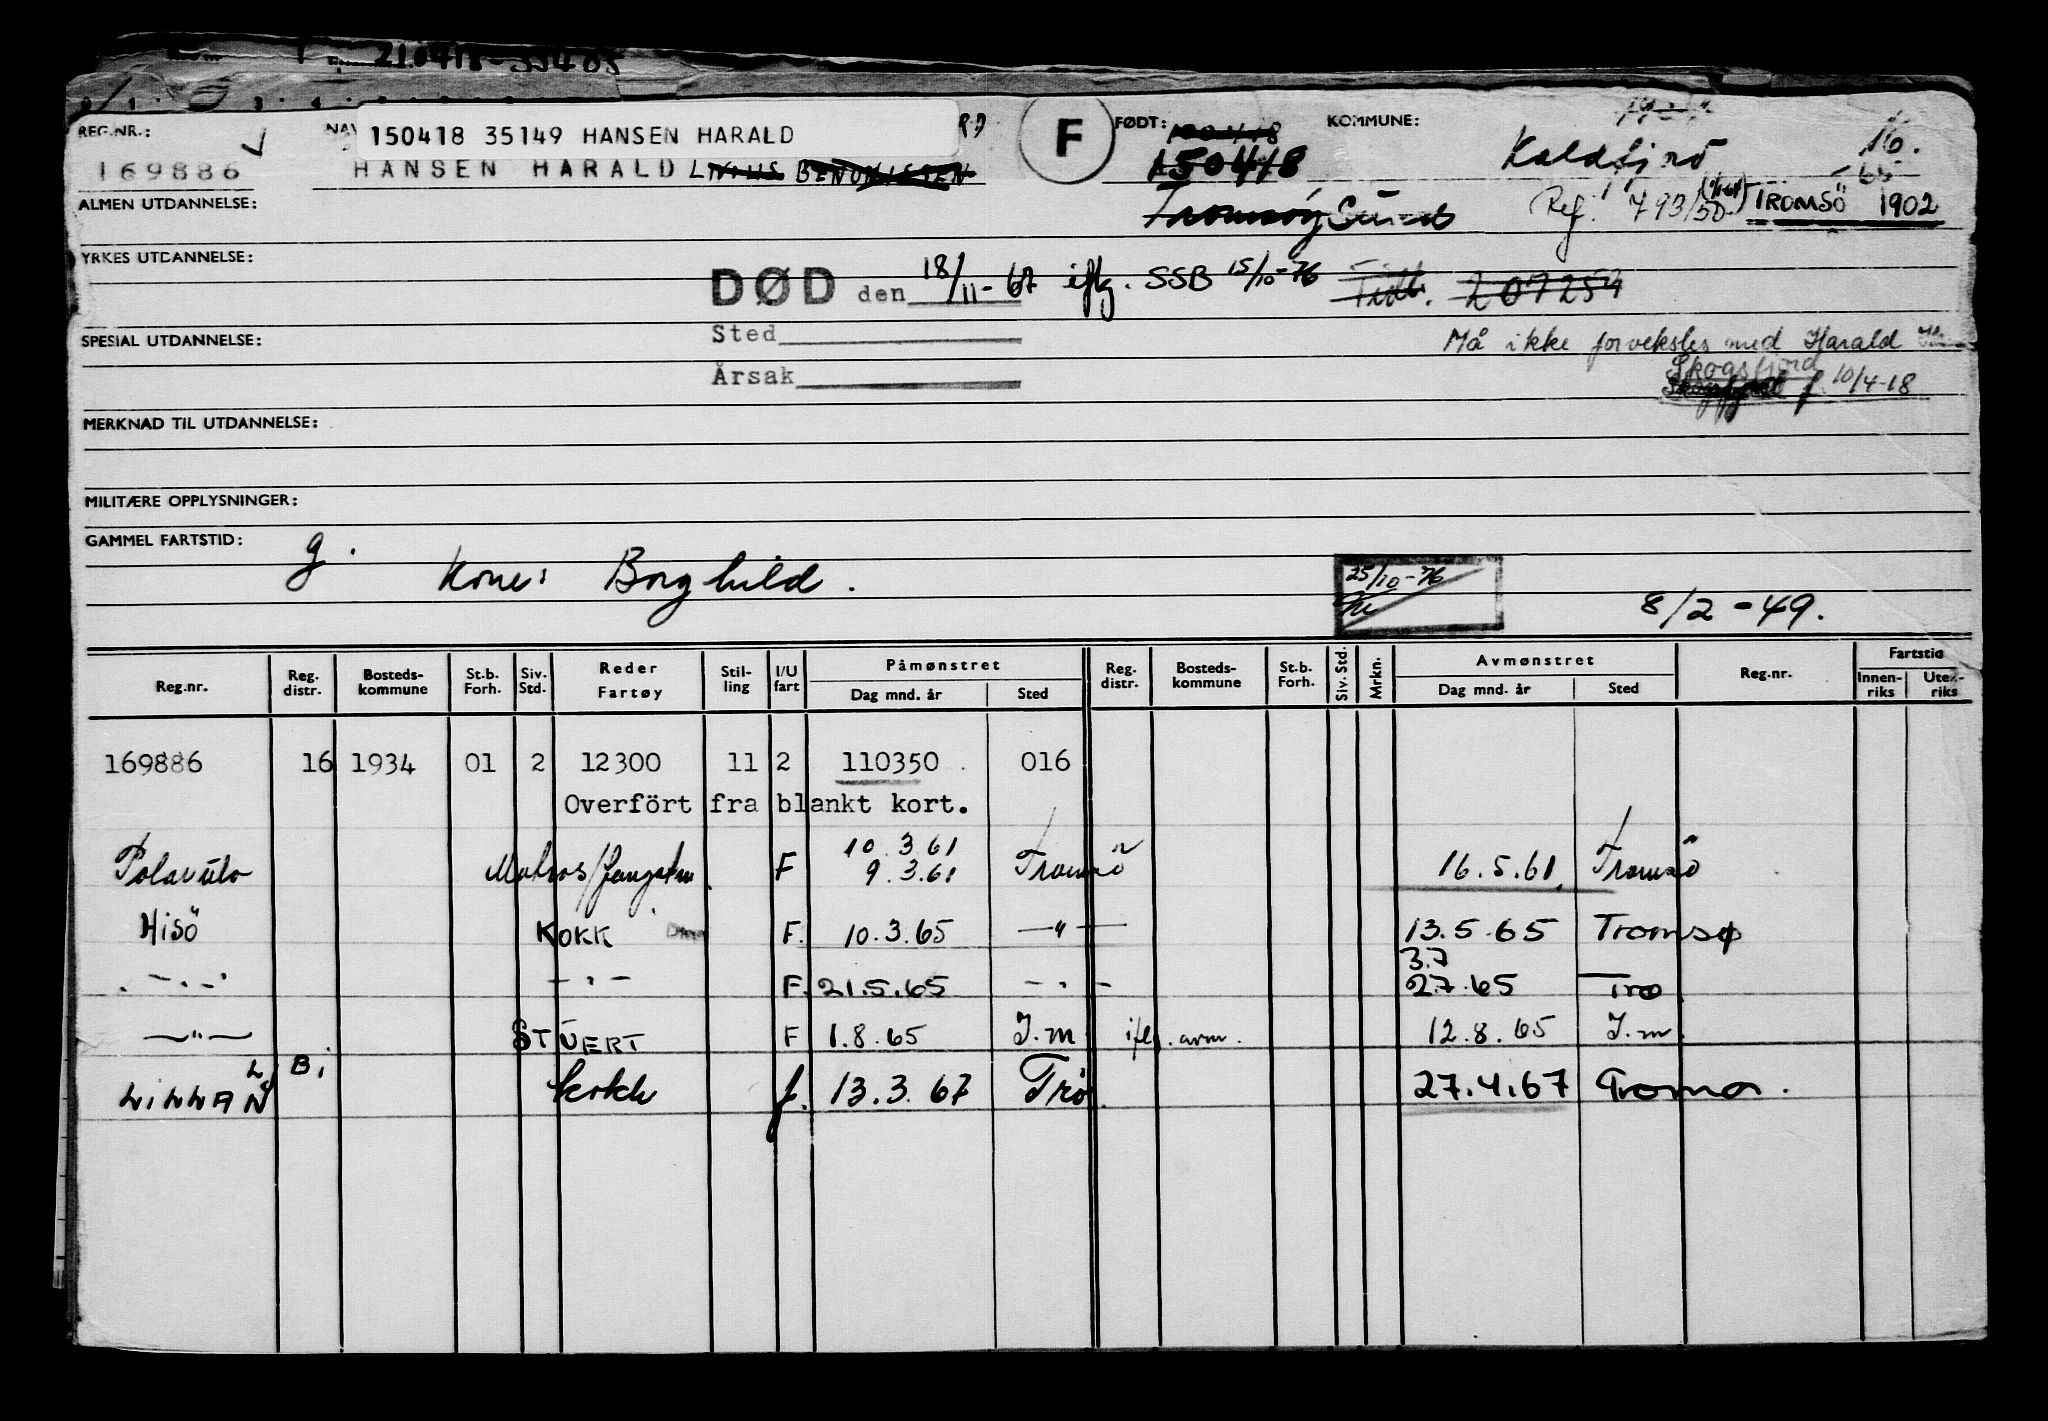 210418-35405
150418 35149 HANSEN HARALD
REG.NR.: FØDT: KOMMUNE:
F 150418 Kaldfjord 16.
169886 HANSEN HARALD LINIUS BENONISEN
ALMEN UTDANNELSE: Tromsøysund Ref. 793/50 TROMSÖ 1902
YRKES UTDANNELSE:
DØD den 18/11-67 iflg. SSB 15/10-76 Tidl. 207254
SPESIAL UTDANNELSE: Sted Må ikke forveksles med Harald
Årsak Skogsfjord
f. 10/4-18
MERKNAD TIL UTDANNELSE:
MILITÆRE OPPLYSNINGER:
GAMMEL FARTSTID: g.
Kone: Borghild. 25/10-76 8/2-49.
Reg.nr. Reg. distr. Bosteds- kommune St.b. Forh. Siv. Std. Reder Fartøy Stil- ling I/U fart Påmønstret Dag mnd. år Sted Reg. distr. Bosteds- kommune St.b. Forh. Siv. Std. Mrkn. Avmønstret Dag mnd. år Sted Reg.nr. Fartstid Innen- riks Uten- riks
169886 16 1934 01 2 12300 11 2 110350 016
Overfört fra blankt kort.
10.3.61
Polarulv Matros/fangstm. F 9.3.61 Tromsö 16.5.61. Tromsö
Hisö KOKK F. 10.3.65 —"— 13.5.65 Tromsø
3.7
—"— —"— F. 21.5.65 —"— 27.65 Tro
—"— STUERT F 1.8.65 J.m ifl. avm. 12.8.65 J.m.
LILLAN L Bi kokk f. 13.3.67 Trö. 27.4.67 Tromsø.